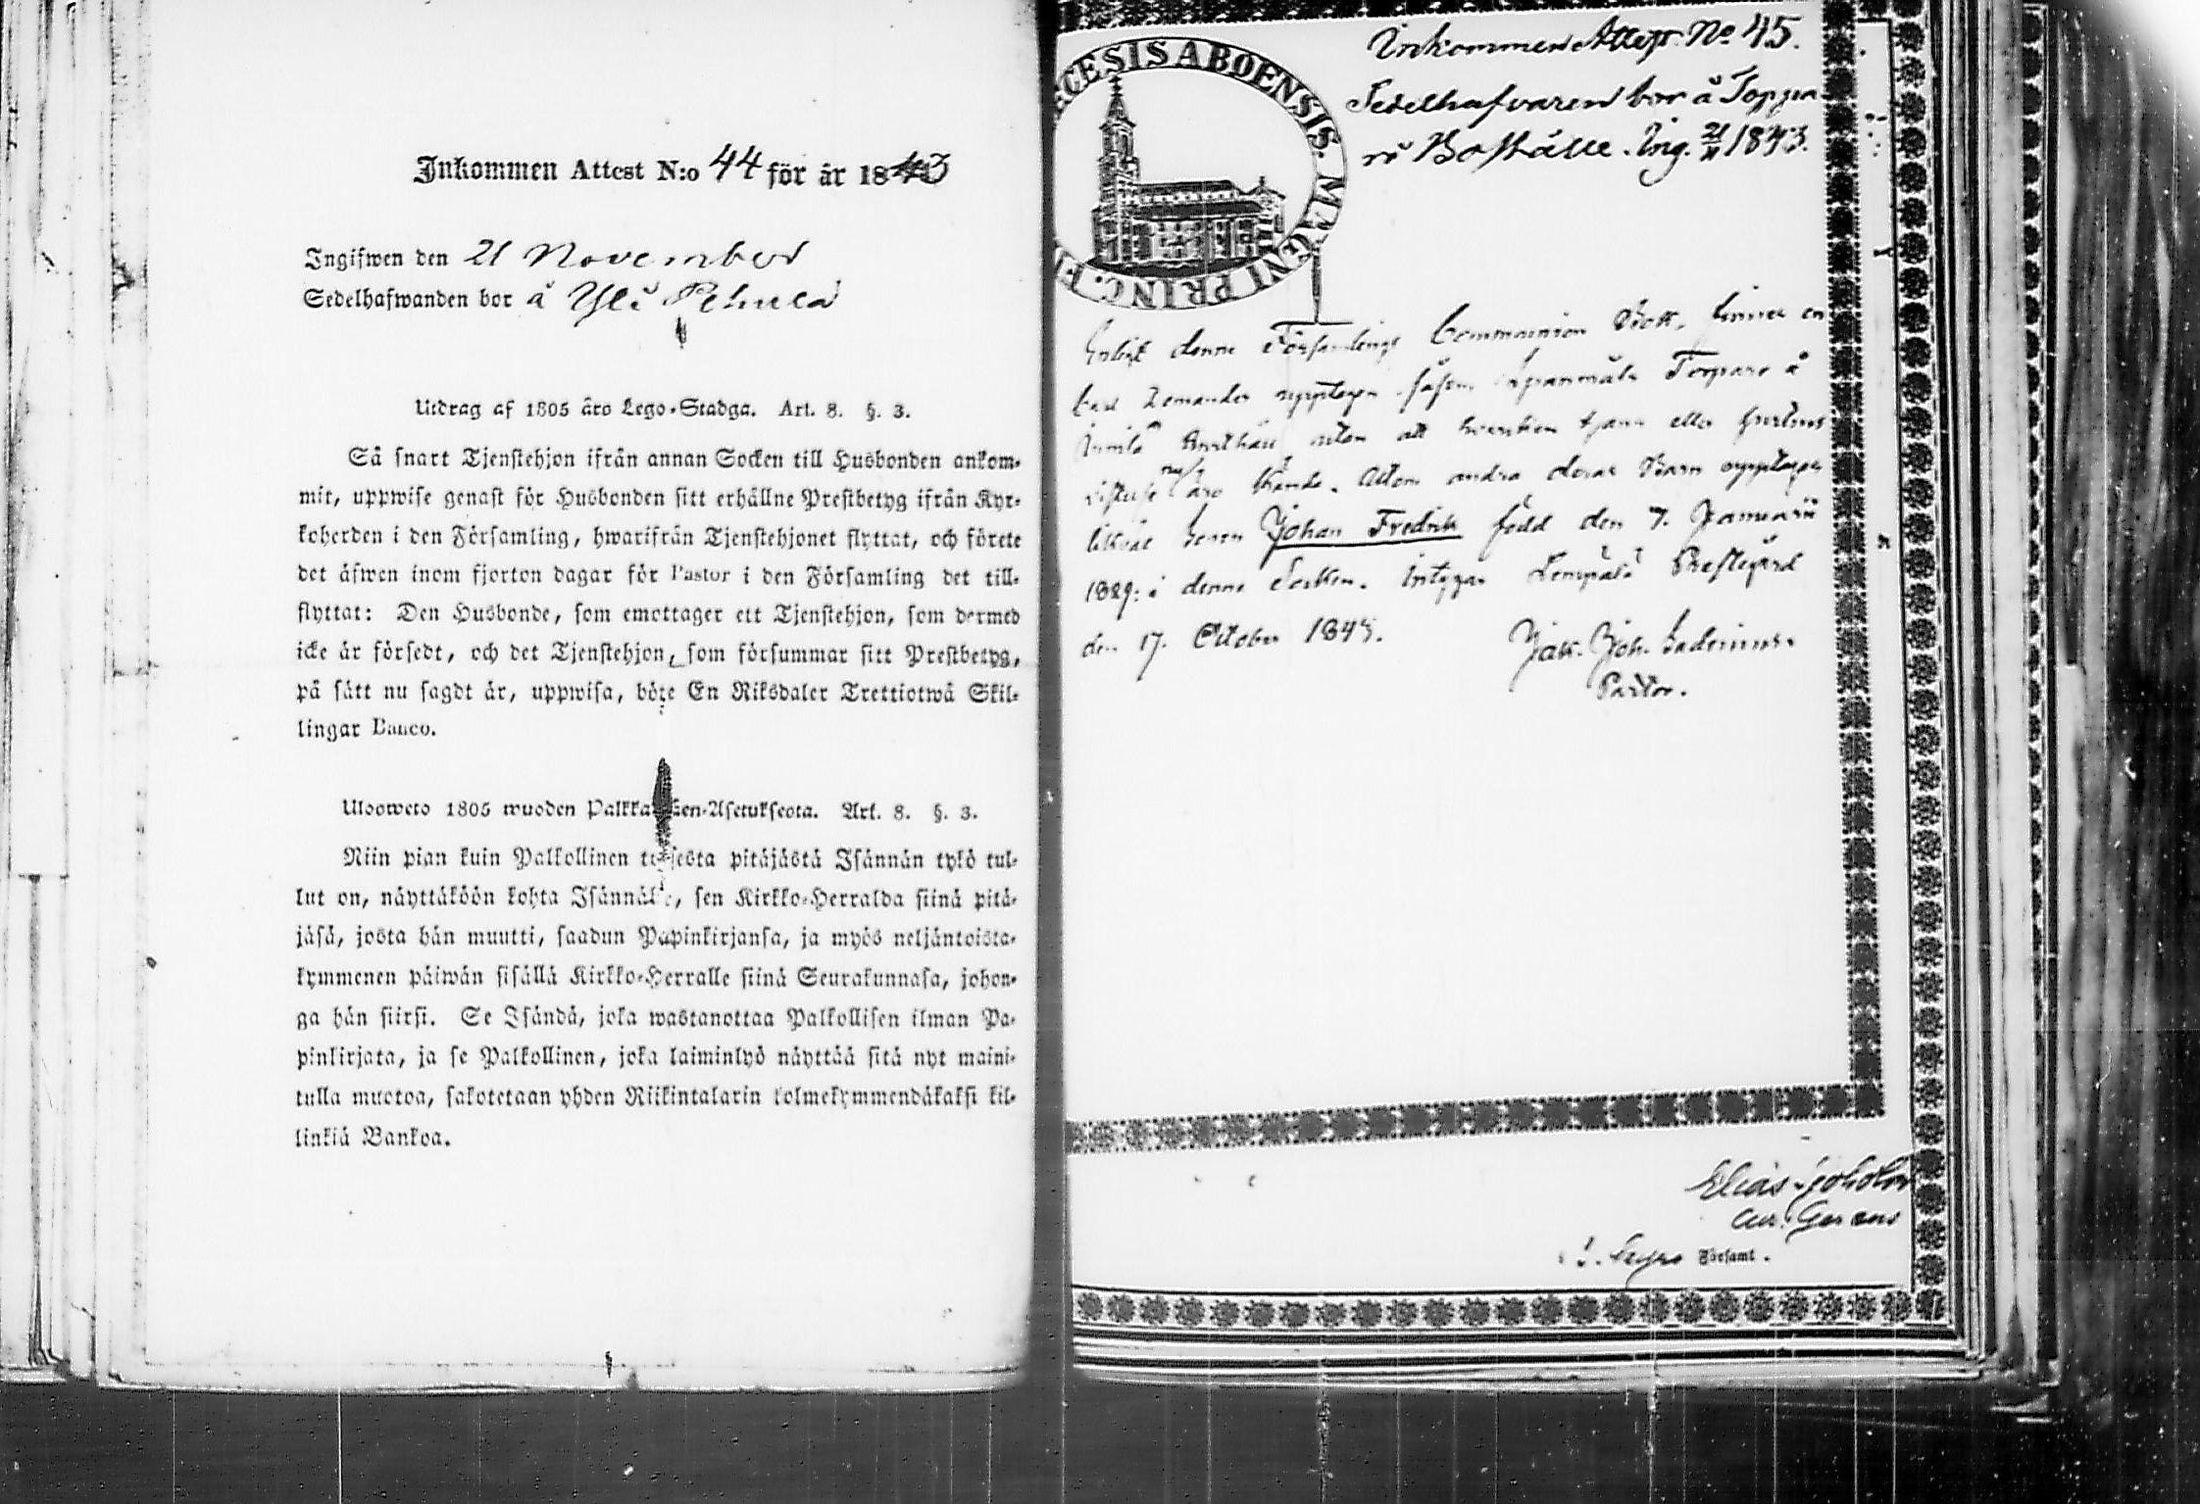 Inkommen Attest N:o 44 för år 1843
Ingifwen den 21 November
Sedelhafwanden bor å Yli
Utdrag af 1805 års Lego-Stadga. Art. 8. §. 3.
Så snart Tjenstehjon ifrån annan Socken till Husbonden ankom-
mit, uppwise genast för Husbonden sitt erhållne Prestbetyg ifrån Kyr-
koherden i den Församling, hwarifrån Tjenstehjonet flyttat, och förete
det äfwen inom fjorton dagar för Pastor i den Församling det till-
flyttat: Den Husbonde, som emottager ett Tjenstehjon, som dermed
icke är försedt, och det Tjenstehjon, som försummar sitt Prestbetyg,
på sätt nu sagdt är, uppwisa, böte En Riksdaler Trettiotwå Skil-
lingar Banco.
Ulosweto 1805 wuoden Palkka Asetuksesta. Art. 8. §. 3.
Niin pian kuin Palkollinen toisesta pitäjästä Isännän tykö tul-
lut on, näyttäköön kohta Isännälle, sen Kirkko-Herralda siinä pitä-
jäsä, josta hän muutti, saadun Papinkirjansa, ja myös neljäntoista-
kymmenen päiwän sisällä Kirkko-Herralle siinä Seurakunnasa, johon-
ga hän siirsi. Se Isändä, joka wastanottaa Palkollisen ilman Pa-
pinkirjata, ja se Palkollinen, joka laiminlyö näyttää sitä nyt maini-
tulla muotoa, sakotetaan yhden Riikintalarin kolmekymmendäkaksi kil-
linkiä Bankoa.
CESIS ABOENSIS. MAGNI PRINC. FI
Inkommen Attest No 45.
Sedelhafvaren bor å Toppa
ri Boställe. Ing. 21/11 1843.
Enligt denne Församlings Communion Bok, finnes en
Carl upptagen såsom Torpare å
uten att hvarken tjenst eller
äro kände. Utom andra deras Barn upptages
Sonen Johan Fredrik född den 7. Januarii
1829: i denna Socken. Intygar Lempälä Prestegård
den 17. October 1843. Jak. Joh.
Pastor.
Elias
Församl.